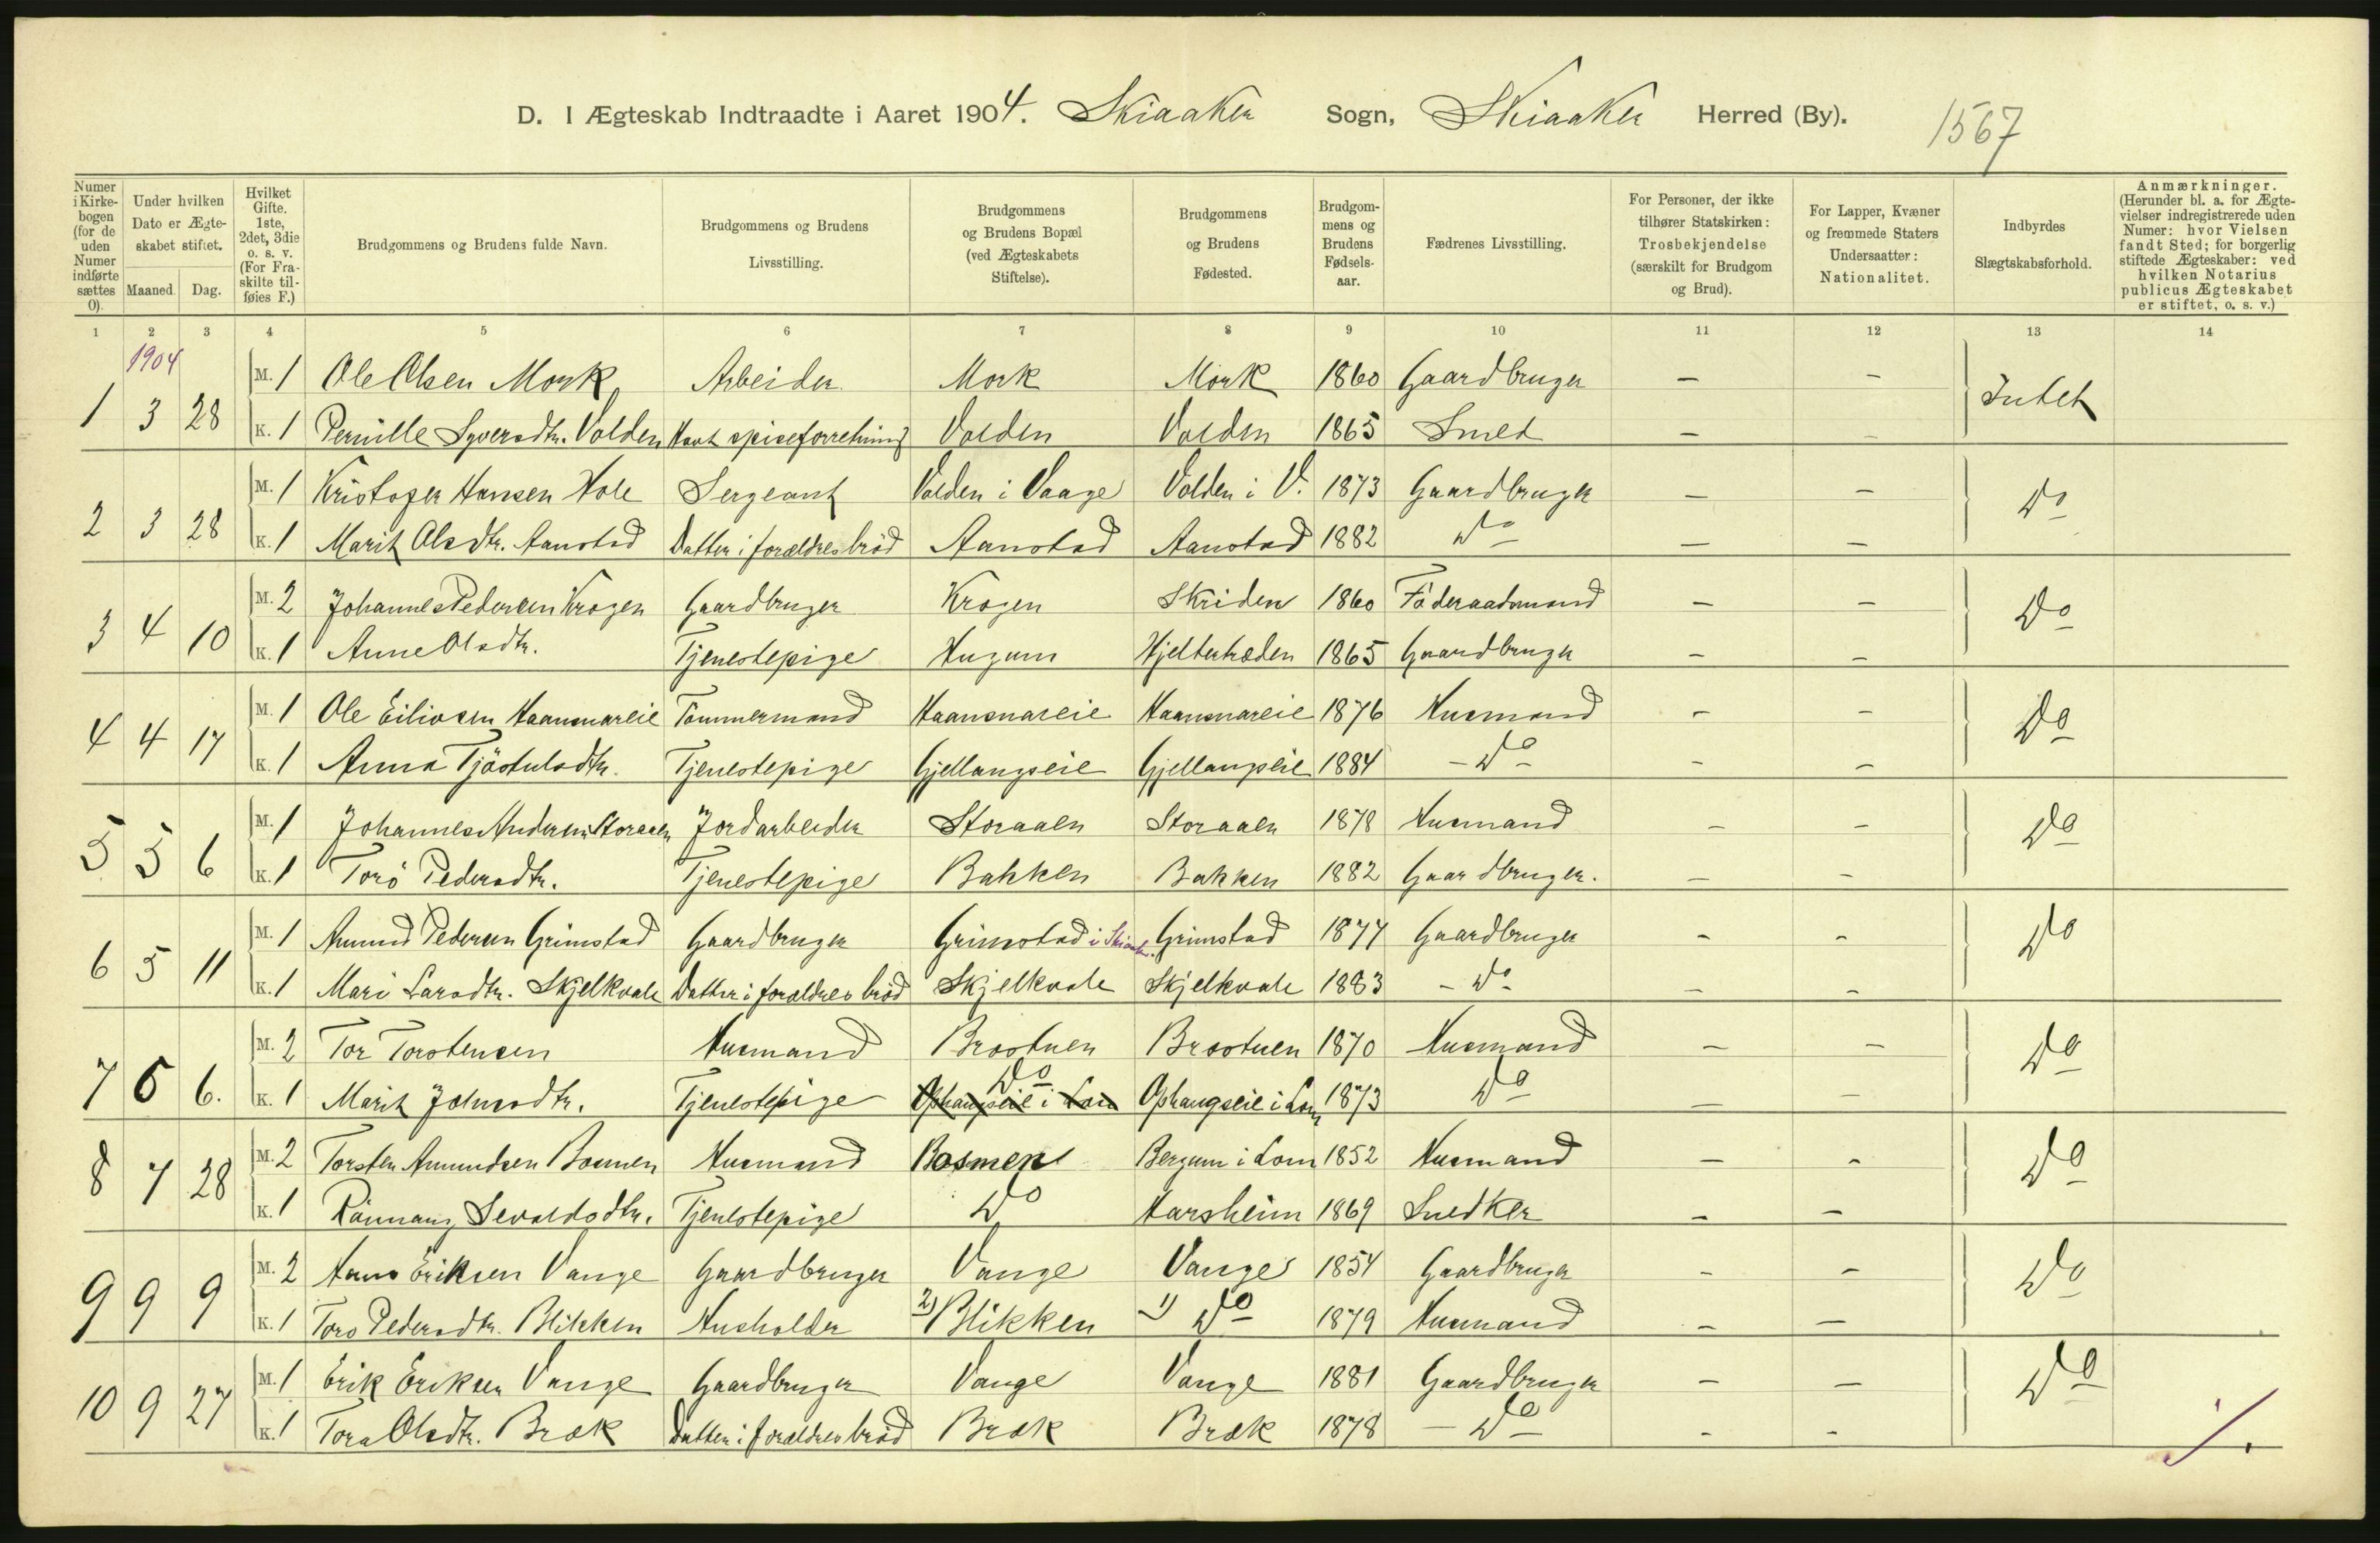 D. I Ægteskab Indtraadte i Aaret 1904. Skiaaker Sogn, Skiaaker Herred (By). 1567
Numer i Kirkebogen (for de uden Numer indførte sættes 0). | Under hvilken Dato er Ægteskabet stiftet. Maaned. Dag. | Hvilket Gifte. 1ste, 2det, 3die o. s. v. (For Fraskilte tilføies F.) | Brudgommens og Brudens fulde Navn. | Brudgommens og Brudens Livsstilling. | Brudgommens og Brudens Bopæl (ved Ægteskabets Stiftelse). | Brudgommens og Brudens Fødested. | Brudgommens og Brudens Fødselsaar. | Fædrenes Livsstilling. | For Personer, der ikke tilhører Statskirken: Trosbekjendelse (særskilt for Brudgom og Brud). | For Lapper, Kvæner og fremmede Staters Undersaatter: Nationalitet. | Indbyrdes Slægtskabsforhold. | Anmærkninger. (Herunder bl. a. for Ægtevielser indregistrerede uden Numer: hvor Vielsen fandt Sted; for borgerlig stiftede Ægteskaber: ved hvilken Notarius publicus Ægteskabet er stiftet, o. s. v.)
1 2 3 4 5 6 7 8 9 10 11 12 13 14
1904
1 3 28 M. 1 Ole Olsen Mork Arbeider Mork Mork 1860 Gaardbruger – – Intet
K. 1 Pernille Syversdtr. Volden Havt spiseforretning Volden Volden 1865 Smed – –
2 3 28 M. 1 Kristofer Hansen Hole Sergeant Volden i Vaage Volden i V. 1873 Gaardbruger – – Do
K. 1 Marit Olsdtr. Aanstad Datter i forældres brød Aanstad Aanstad 1882 Do – –
3 4 10 M. 2 Johannes Pedersen Krogen Gaardbruger Krogen Skriden 1860 Föderaadsmand – – Do
K. 1 Anne Olsdtr. Tjenestepige Hugum Hjelterhæden 1865 Gaardbruger – –
4 4 17 M. 1 Ole Eilivsen Haansnareie Tömmermand Haansnareie Haansnareie 1876 Husmand – – Do
K. 1 Anna Tjöstulsdtr. Tjenestepige Gjellangseie Gjellangseie 1884 – Do – –
5 5 6 M. 1 Johannes Andersen Storaaen Jordarbeider Storaaen Storaaen 1878 Husmand – – Do
K. 1 Torö Pedersdtr. Tjenestepige Bakken Bakken 1882 Gaardbruger. – –
6 5 11 M. 1 Amund Pedersen Grimstad Gaardbruger Grimstad i Skiaak. Grimstad 1877 Gaardbruger – – Do
K. 1 Mari Larsdtr. Skjelkvale Datter i forældres brød Skjelkvale Skjelkvale 1883 – Do – –
7 6 6. M. 2 Tor Torstensen Husmand Brostuen Brostuen 1870 Husmand – – Do
K. 1 Marit Johnsdtr. Tjenestepige Ophaugseie i Lom Do Ophaugseie i Lom 1873 Do – –
8 7 28 M. 2 Torsten Amundsen Bosmen Husmand Bosmen Bergum i Lom 1852 Husmand – – Do
K. 1 Rönnaug Sevaldsdtr. Tjenestepige Do Harsheim 1869 Snedker – –
9 9 9 M. 2 Hans Eriksen Vange Gaardbruger Vange Vange 1854 Gaardbruger – – Do
K. 1 Toro Pedersdtr. Blikken Husholder 2) Blikken 1) Do 1879 Husmand – –
10 9 27 M. 1 Erik Eriksen Vange Gaardbruger Vange Vange 1881 Gaardbruger – – Do
K. 1 Tora Olsdtr. Bræk Datter i forældres brød Bræk Bræk 1878 – Do – –